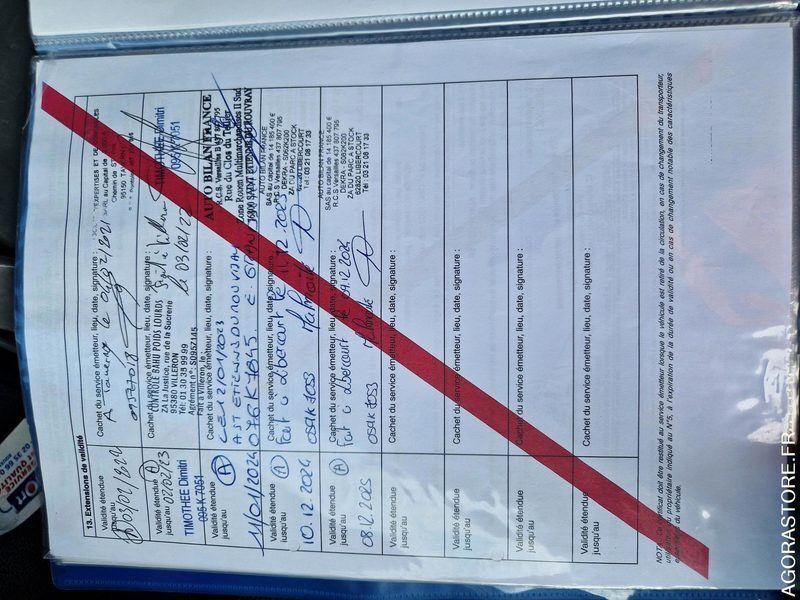 13. Extensions de validité
Validité étendue
jusqu'au
03/02/2022
Cachet du service émetteur, lieu, date, signature :
A Taverny le 04/02/2021
Chemin de
95150
Validité étendue
jusqu'au 02/02/23
TIMOTHEE Dimitri
095K7051
Cachet du service émetteur, lieu, date, signature :
CONTROLE BANU POIDS LOURDS
ZA La Justice, rue de la Sucrerie
95380 VILLERON
Tél: 01 30 35 99 99
Agrément n°: S095Z145
Fait à Villeron
le 03/02/22
TIMOTHEE Dimitri
095K7051
Validité étendue
jusqu'au
A
11/01/2024
Cachet du service émetteur, lieu, date, signature :
LE 12/01/2023
A ST ETIENNE DU ROUVRAY
076K7845
AUTO BILAN FRANCE
R.C.S. Versailles B 437 807 795
Rue du Clos du Tellier
Zone Rouen Multimarchandises II Sud
Validité étendue
jusqu'au
A
10.12.2024
Cachet du service émetteur, lieu, date, signature :
Fait à Libercourt le 11.12.2023
059K7053
AUTO BILAN FRANCE
SAS au capital de 14 185 400 €
R.C.S Versailles 437 807 795
DEKRA - S062K200
ZA DU PARC A STOCK
62820 LIBERCOURT
Tél : 03 21 08 17 33
Validité étendue
jusqu'au
A
08.12.2025
Cachet du service émetteur, lieu, date, signature :
Fait à Libercourt le 09.12.2024
059K7053
AUTO BILAN FRANCE
SAS au capital de 14 185 400 €
R.C.S Versailles 437 807 795
DEKRA - S062K200
ZA DU PARC A STOCK
62820 LIBERCOURT
Tél : 03 21 08 17 33
Validité étendue
jusqu'au
Cachet du service émetteur, lieu, date, signature :
Validité étendue
jusqu'au
Cachet du service émetteur, lieu, date, signature :
Validité étendue
jusqu'au
Cachet du service émetteur, lieu, date, signature :
Validité étendue
jusqu'au
Cachet du service émetteur, lieu, date, signature :
NOTE: Ce certificat doit être restitué au service émetteur lorsque le véhicule est retiré de la circulation, en cas de changement du transporteur,
utilisateur ou propriétaire indiqué au N°5, à l'expiration de la durée de validité ou en cas de changement notable des caractéristiques
du véhicule.
AGORASTORE.FR